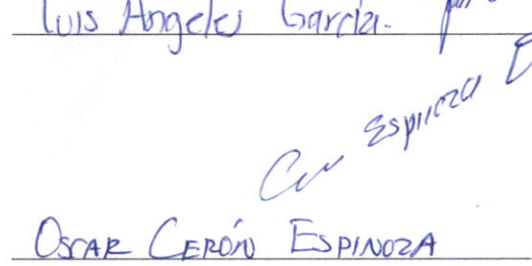 Luis Angeles García.
Espinoza
OSCAR CERÓN ESPINOZA